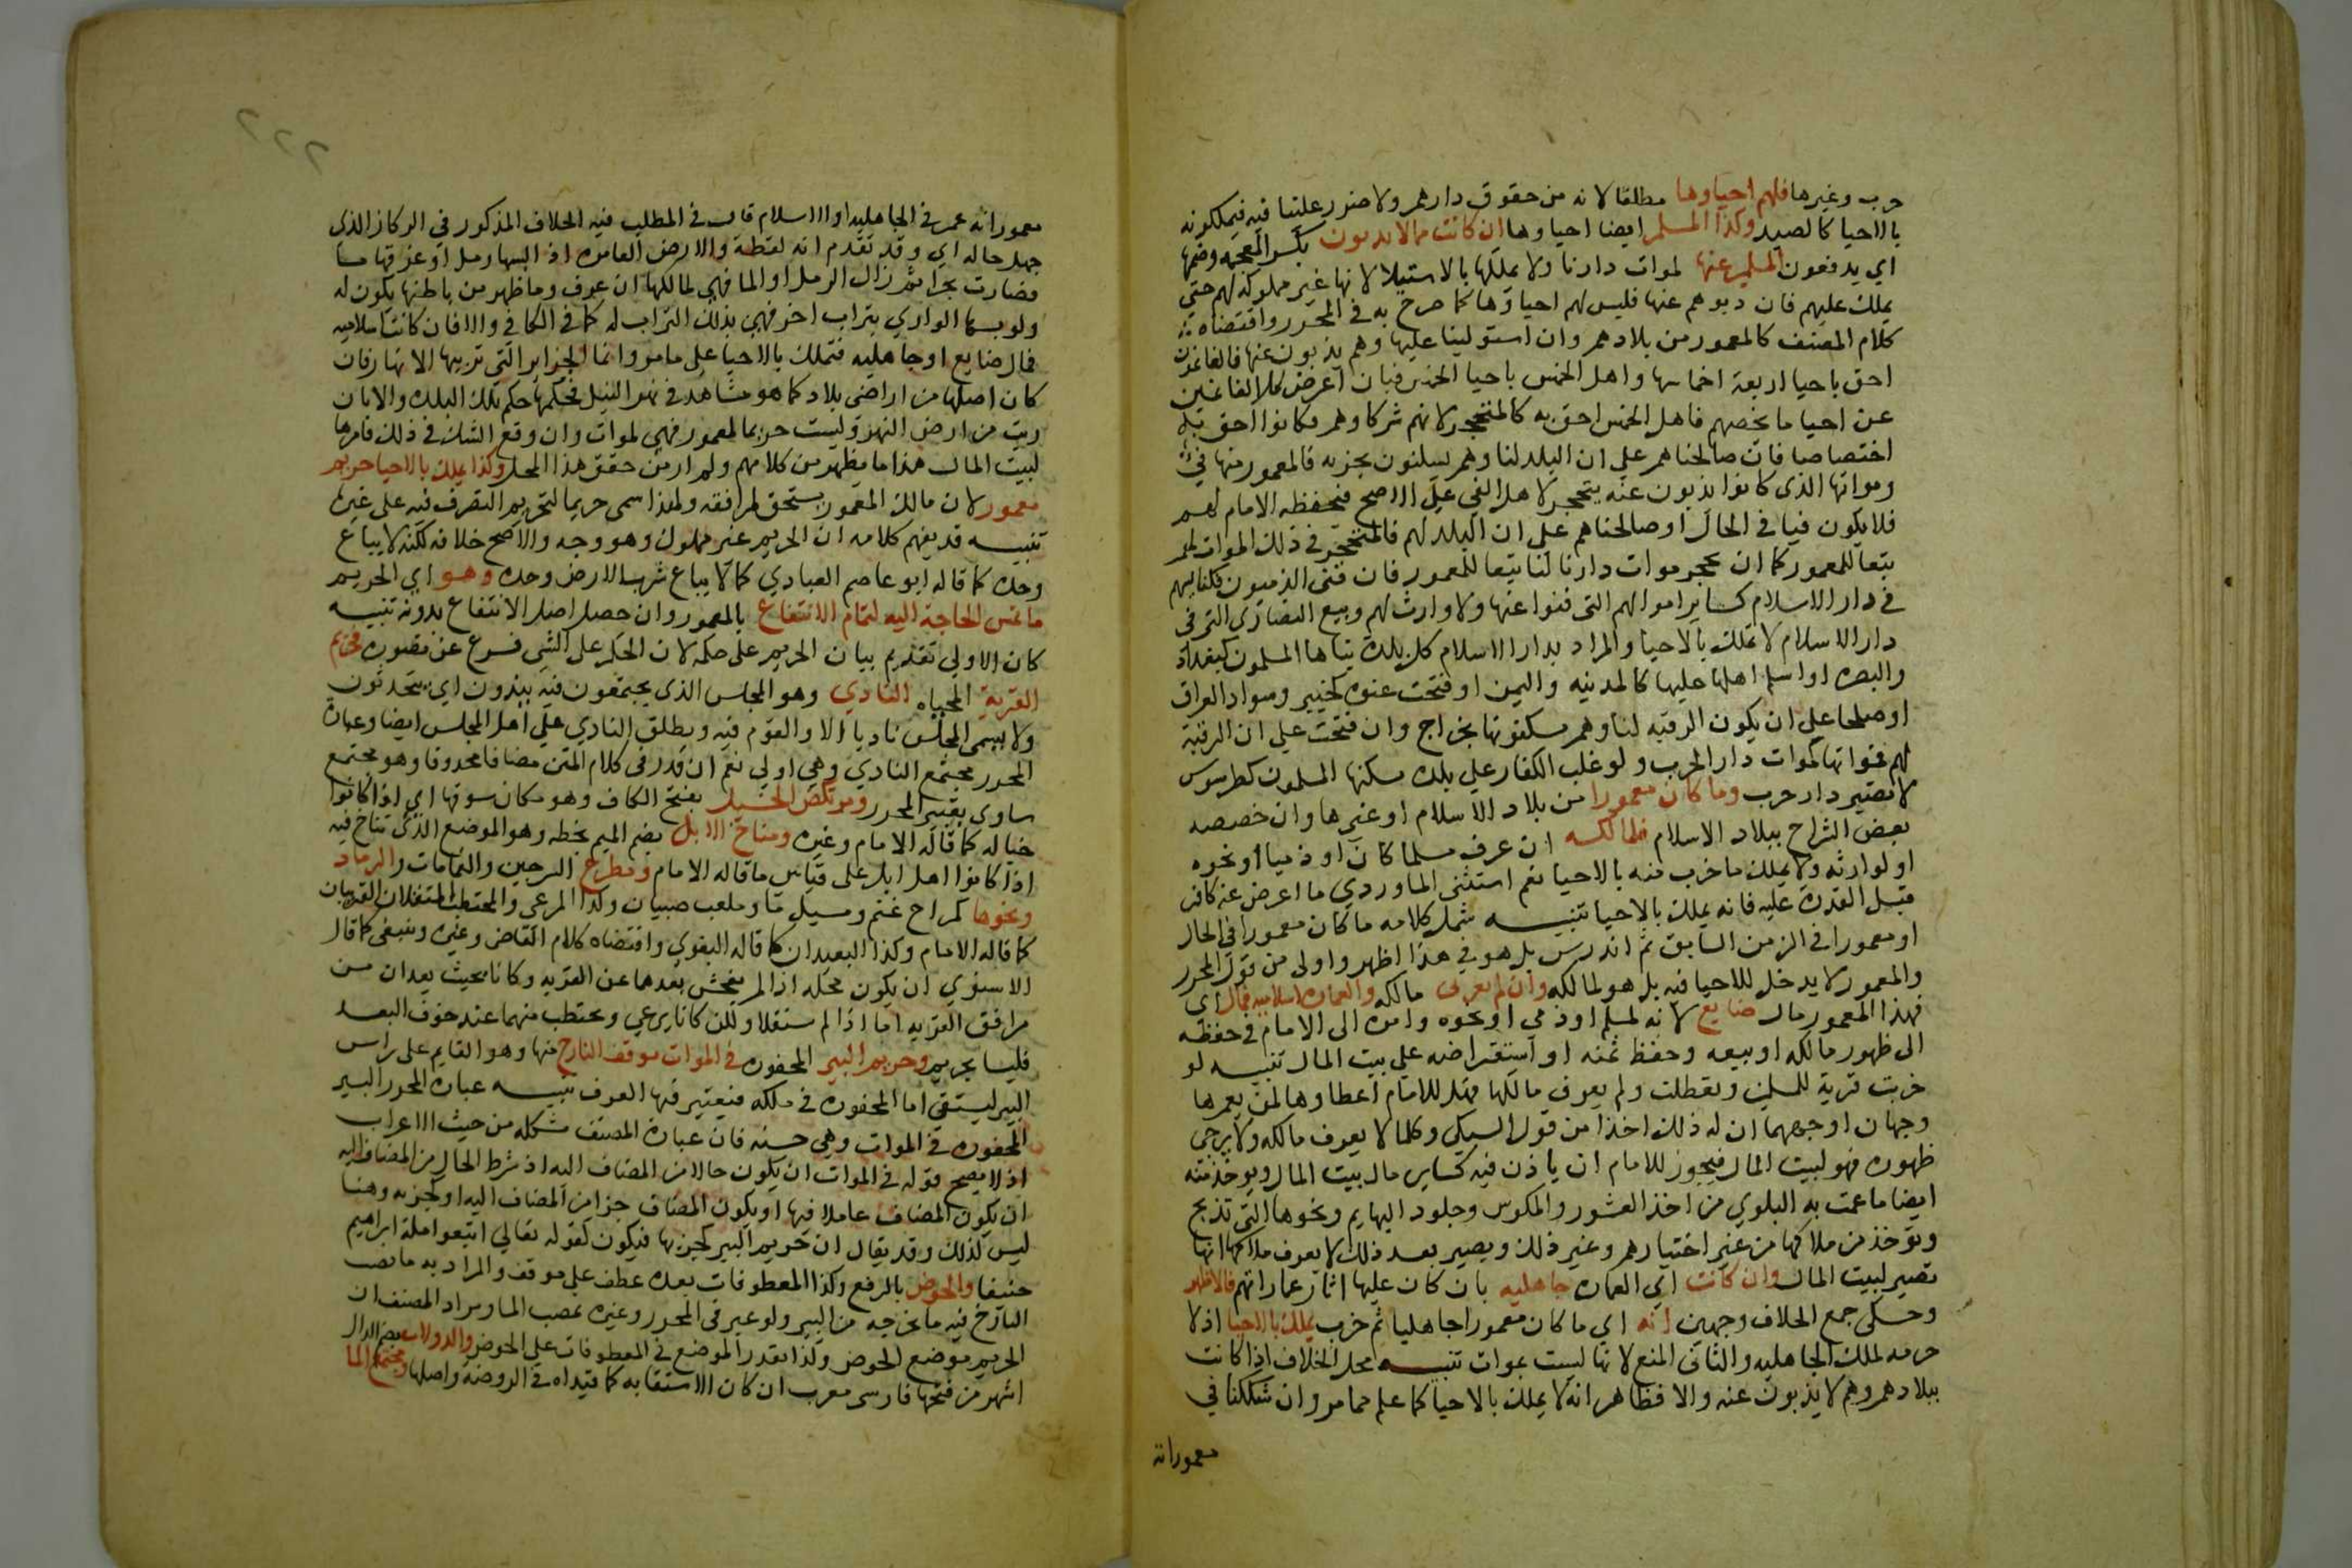 حرب وغيرها فلهم احياوها مطلقا لانه من حقوق دارهم ولا ضرر علينا فيه فيملكونه
بالاحيا كالصيد وكذا المسلم ايضا احياوها ان كانت مما لا يذبون بكسر المعجمه وضمها
اي يدفعون المسلمين عنها لموات دارنا ولا يملكها بالاستيلا لانها غير مملوكه لهم حتي
يملك عليهم فان ذبوهم عنها فليس لهم احياوها كما صرح به في المحرر واقتضاه
كلام المصنف كالمعمور من بلادهم وان استولينا عليها وهم يذبون عنها فالغانمون
احق باحيا اربعة اخماسها واهل الخمس باحيا الخمس فبان اعرض كل الغانمين
عن احيا ما يخصهم فاهل الخمس احق به كالمتحجر لانهم شركاوهم وكانوا احق به
اختصاصا فان صالحناهم علي ان البلد لنا وهم يسكنون بجزيه فالمعمور منها في
ومواتها الذي كانوا يذبون عنه يتحجر لاهل الفي علي الاصح فيحفظه الامام لهم
فلا يكون فيا في الحال او صالحناهم علي ان البلد لهم فالمتحجر في ذلك الموات لهم
تبعا للمعمور كما ان تحجر موات دارنا لنا تبعا للمعمور فان فني الذميون فكنايسهم
في دار الاسلام كساير اموالهم التي فنوا عنها ولا وارث لهم وبيع النصاري التي في
دار الاسلام لا تملك بالاحيا والمراد بدار الاسلام كل بلدة بناها المسلمون كبغداد
والبصره او اسلم اهلها عليها كالمدينه واليمن او فتحت عنوة كخيبر وسواد العراق
او صلحا علي ان يكون الرقبه لنا وهم يسكنونها بخراج وان فتحت علي ان الرقبة
لهم فمواتها كموات دار الحرب ولو غلب الكفار علي بلده يسكنها المسلمون كطرسوس
لا تصير دار حرب وما كان معمورا من بلاد الاسلام او غيرها وان خصصه
بعض الشراح ببلاد الاسلام فلمالكه ان عرف مسلما كان او ذميا او نحوه
او لوارثه ولا يملك ما خرب منه بالاحيا نعم استثنى الماوردي ما اعرض عنه كافر
قبل القدرة عليه فانه يملك بالاحيا تنبيه شمل كلامه ما كان معمورا في الحال
او معمورا في الزمن السابق ثم اندرس بل هو في هذا اظهر واولى من قول المحرر
والمعمور لا يدخل للاحيا فيه بل هو لمالكه وان لم يعرف مالكه والعمارة اسلاميه فمال اي
فهذا المعمور مال ضايع لانه لمسلم او ذمي او نحوه وامره الى الامام في حفظه
الى ظهور مالكه او بيعه وحفظ ثمنه او استقراضه علي بيت المال تنبيه لو
خربت قرية للمسلمين وتعطلت ولم يعرف مالكها فهل للامام اعطاوها لمن يعمرها
وجهان اوجههما ان له ذلك اخذا من قول السبكي وكلما لا يعرف مالكه ولا يرجى
ظهوره فهو لبيت المال فيجوز للامام ان ياذن فيه كساير مال بيت المال ويوخذ منه
ايضا ما عمت به البلوي من اخذ العشور والمكوس وجلود البهايم ونحوها التي تذبح
وتوخذ من ملاكها من غير اختيارهم وغير ذلك ويصير بعد ذلك لا يعرف ملاكها انها
تصير لبيت المال وان كانت اي العماره جاهليه بان كان عليها اثار عماراتهم فالاظهر
وحكى جمع الخلاف وجهين انه اي ما كان معمورا جاهليا ثم خرب يملك بالاحيا اذ لا
حرمه لملك الجاهليه والثاني المنع لانها ليست بموات تنبيه محل الخلاف اذا كانت
ببلادهم وهم لا يذبون عنه والا فظاهر انه لا يملك بالاحيا كما علم مما مر وان شككنا في
معمورانه
٢٢٢
معمورانه عمر في الجاهليه او الاسلام قال في المطلب فيه الخلاف المذكور في الركاز الذي
جهل حاله اي وقد تقدم انه لقطة والارض العامره اذا البسها رمل او غرقها ما
فصارت بحرا ثم زال الرمل او الما فهي لمالكها ان عرف وما ظهر من باطنها يكون له
ولو بسها الوادي بتراب اخر فهي بذلك التراب له كما في الكافي والا فان كانت اسلاميه
فمال ضايع او جاهليه فتملك بالاحيا علي ما مر واما الجزاير التي تربيها الانهار فان
كان اصلها من اراضي بلاد كما هو مشاهد في نهر النيل فحكمها حكم تلك البلد والا بان
ربت من ارض النهر وليست حريما لمعمور فهي لموات وان وقع الشك في ذلك فامرها
لبيت المال هذا ما يظهر من كلامهم ولم ار من حقق هذا المحل وكذا يملك بالاحيا حريم
معمور لان مالك المعمور يستحق لمرافقه ولهذا سمى حريما لتحريم التصرف فيه على غيره
تنبيه قد يفهم كلامه ان الحريم غير مملوك وهو وجه والاصح خلافه لكنه لا يباع
وحده كما قاله ابو عاصم العبادي كما لا يباع شرب الارض وحده وهو اي الحريم
ما تمس الحاجة اليه لتمام الانتفاع بالمعمور وان حصل اصل الانتفاع بدونه تنبيه
كان الاولي تقديم بيان الحريم على حكمه لان الحكم على الشي فرع عن تصوره فحريم
القرية المحياه النادي وهو المجلس الذي يجتمعون فيه يندون اي يتحدثون
ولا يسمى المجلس ناديا الا والقوم فيه ويطلق النادي علي اهل المجلس ايضا وعبارة
المحرر مجتمع النادي وهي اولي نعم ان قدر في كلام المتن مضافا محذوفا وهو مجتمع
ساوى تعبير المحرر ومرتكض الخيل بفتح الكاف وهو مكان سوقها اي اذا كانوا
خياله كما قاله الامام وغيره ومناخ الابل بضم الميم بخطه وهو الموضع الذي تناخ فيه
اذا كانوا اهل ابل على قياس ما قاله الامام ومطرح السرجين والقمامات والرماد
ونحوها كمراح غنم ومسيل ما وملعب صبيان وكذا المرعي والمحتطب المستقلان القريبان
كما قاله الامام وكذا البعيدان كما قاله البغوي واقتضاه كلام القاضي وغيره وينبغي كما قال
الاسنوي ان يكون محله اذا لم يفحش بعدهما عن القريه وكانا بحيث يعدان من
مرافق القريه اما اذا لم يستقلا ولكن كانا يرعي ويحتطب منهما عند خوف البعد
فليسا بحريم وحريم البير المحفوره في الموات موقف النازح منها وهو القايم على راس
البير ليستقي اما المحفوره في ملكه فيعتبر فيها العرف تنبيه عبارة المحرر البير
المحفوره في الموات وهي حسنه فان عبارة المصنف مشكله من حيث الاعراب
اذ لا يصح قوله في الموات ان يكون حالا من المضاف اليه اذ شرط الحال من المضاف اليه
ان يكون المضاف عاملا فيها او يكون المضاف جزا من المضاف اليه او كجزيه وهنا
ليس كذلك وقد يقال ان حريم البير كجزيها فيكون كقوله تعالي اتبعوا ملة ابراهيم
حنيفا والحوض بالرفع وكذا المعطوفات بعده عطف علي موقف والمراد به ما يصب
النازح فيه ما يخرجه من البير ولو عبر في المحرر وغيره بمصب الما ومراد المصنف ان
الحريم موضع الحوض وكذا يقدر الموضع في المعطوفات على الحوض والدولاب بضم الدال
اشهر من فتحها فارسي معرب ان كان الاستقا به كما قيداه في الروضة واصلها ومجتمع الما